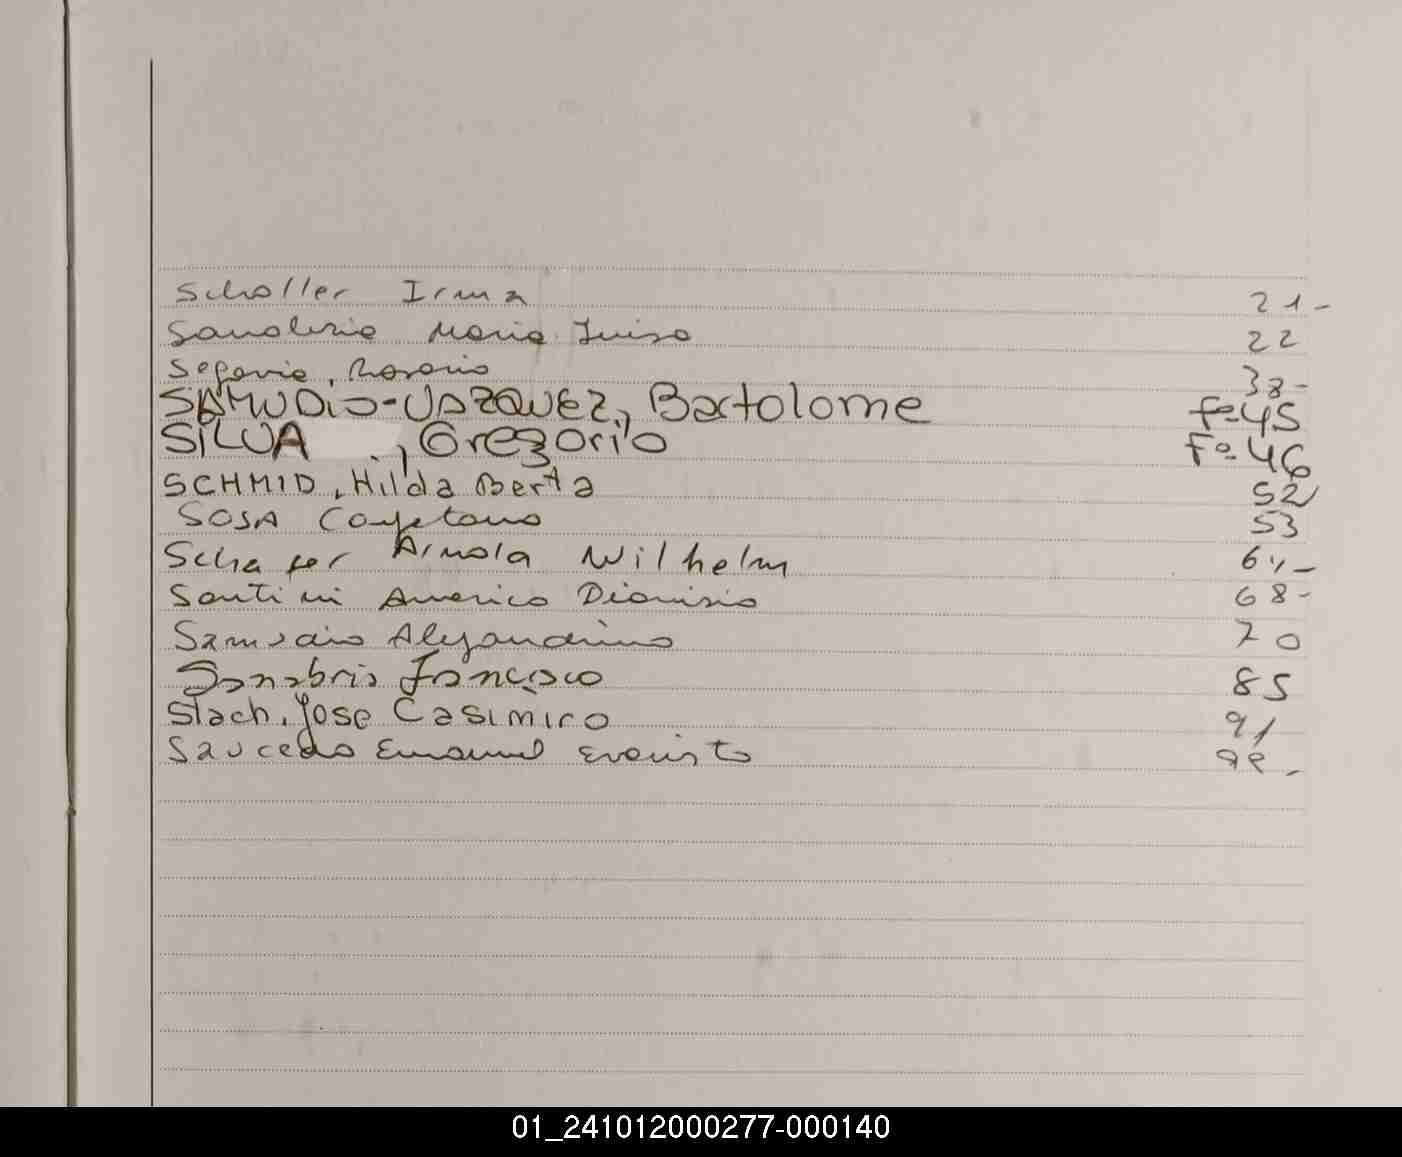 Scholler Irma 21-
Sanabria Maria Luisa 22
Segovia, Rosario 38-
SAMUDIO-VAZQUEZ, Bartolome Fº-45
SILVA , Gregorio Fº-46
SCHMID, Hilda Berta 52
SOSA Cayetano 53
Schafer Arnold Wilhelm
Santini Americo Dionisio 68-
Samudio Alejandrino 70
Sanabria Francisco 85
Slach, Jose Casimiro 91
Saucedo Emanuel Evaristo
01_241012000277-000140